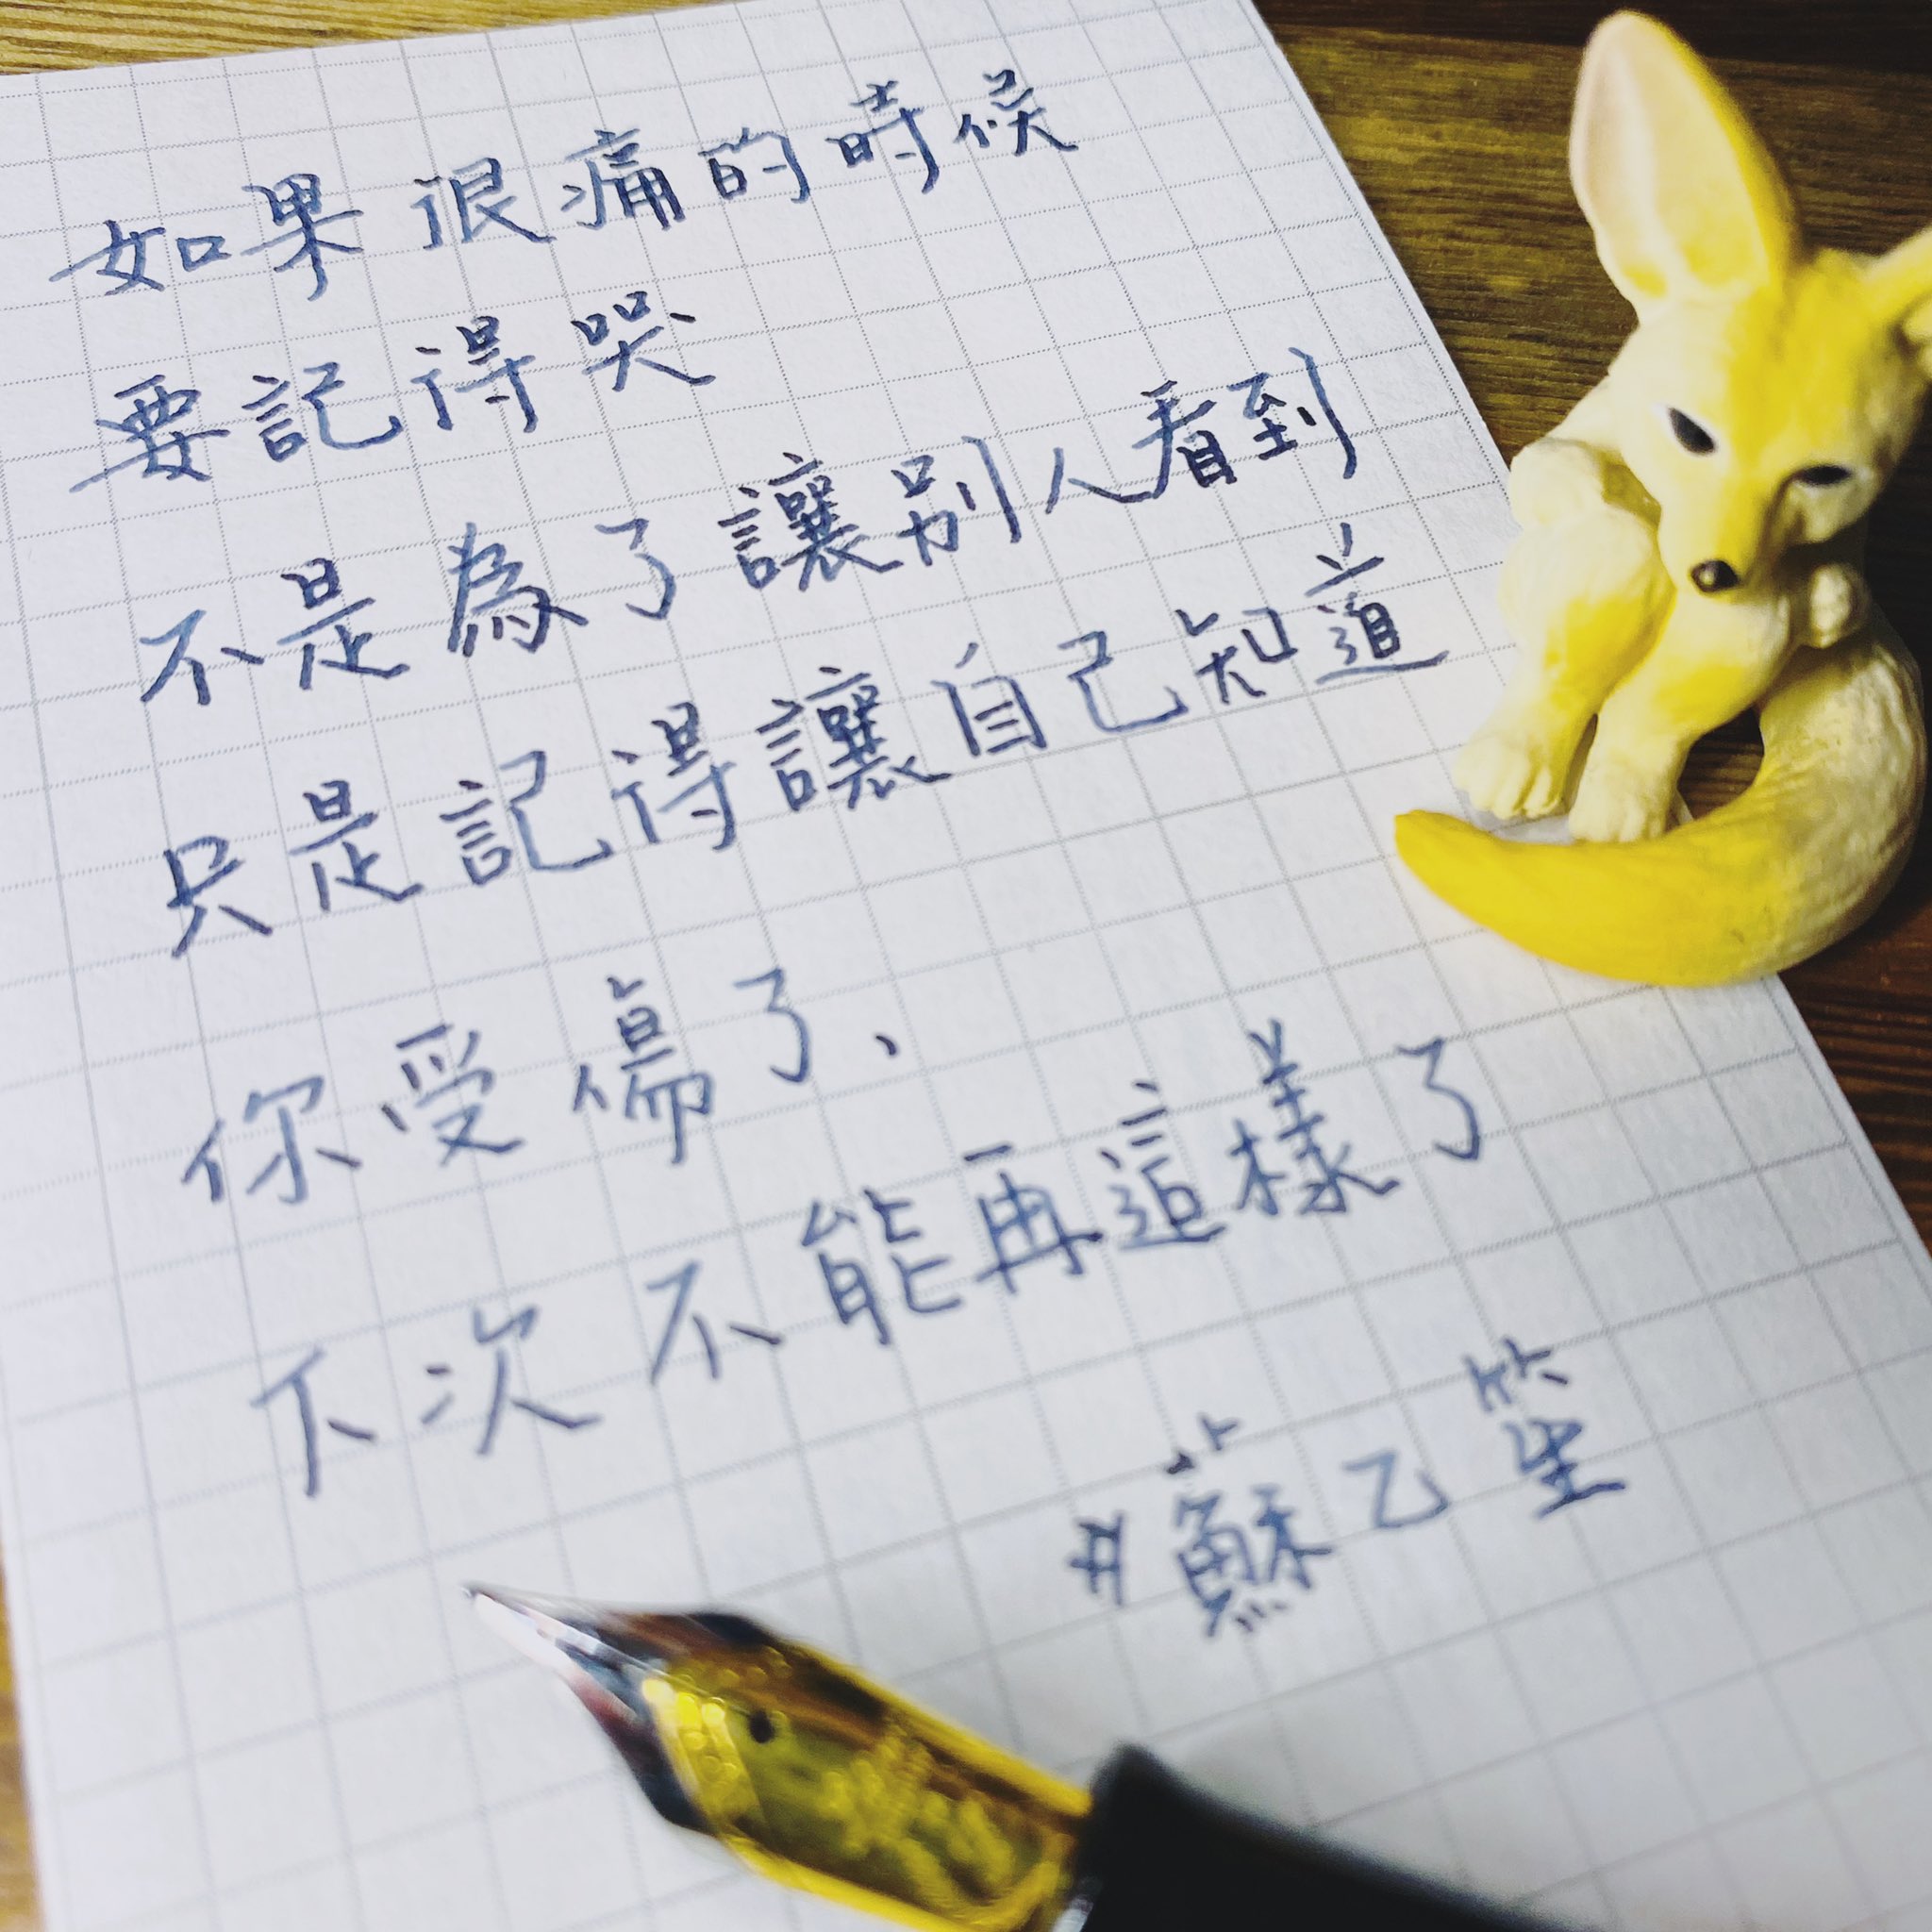 如果很痛的時候
要記得哭
不是為了讓別人看到
只是記得讓自己知道
你受傷了、
下次不能再這樣了
#蘇乙笙